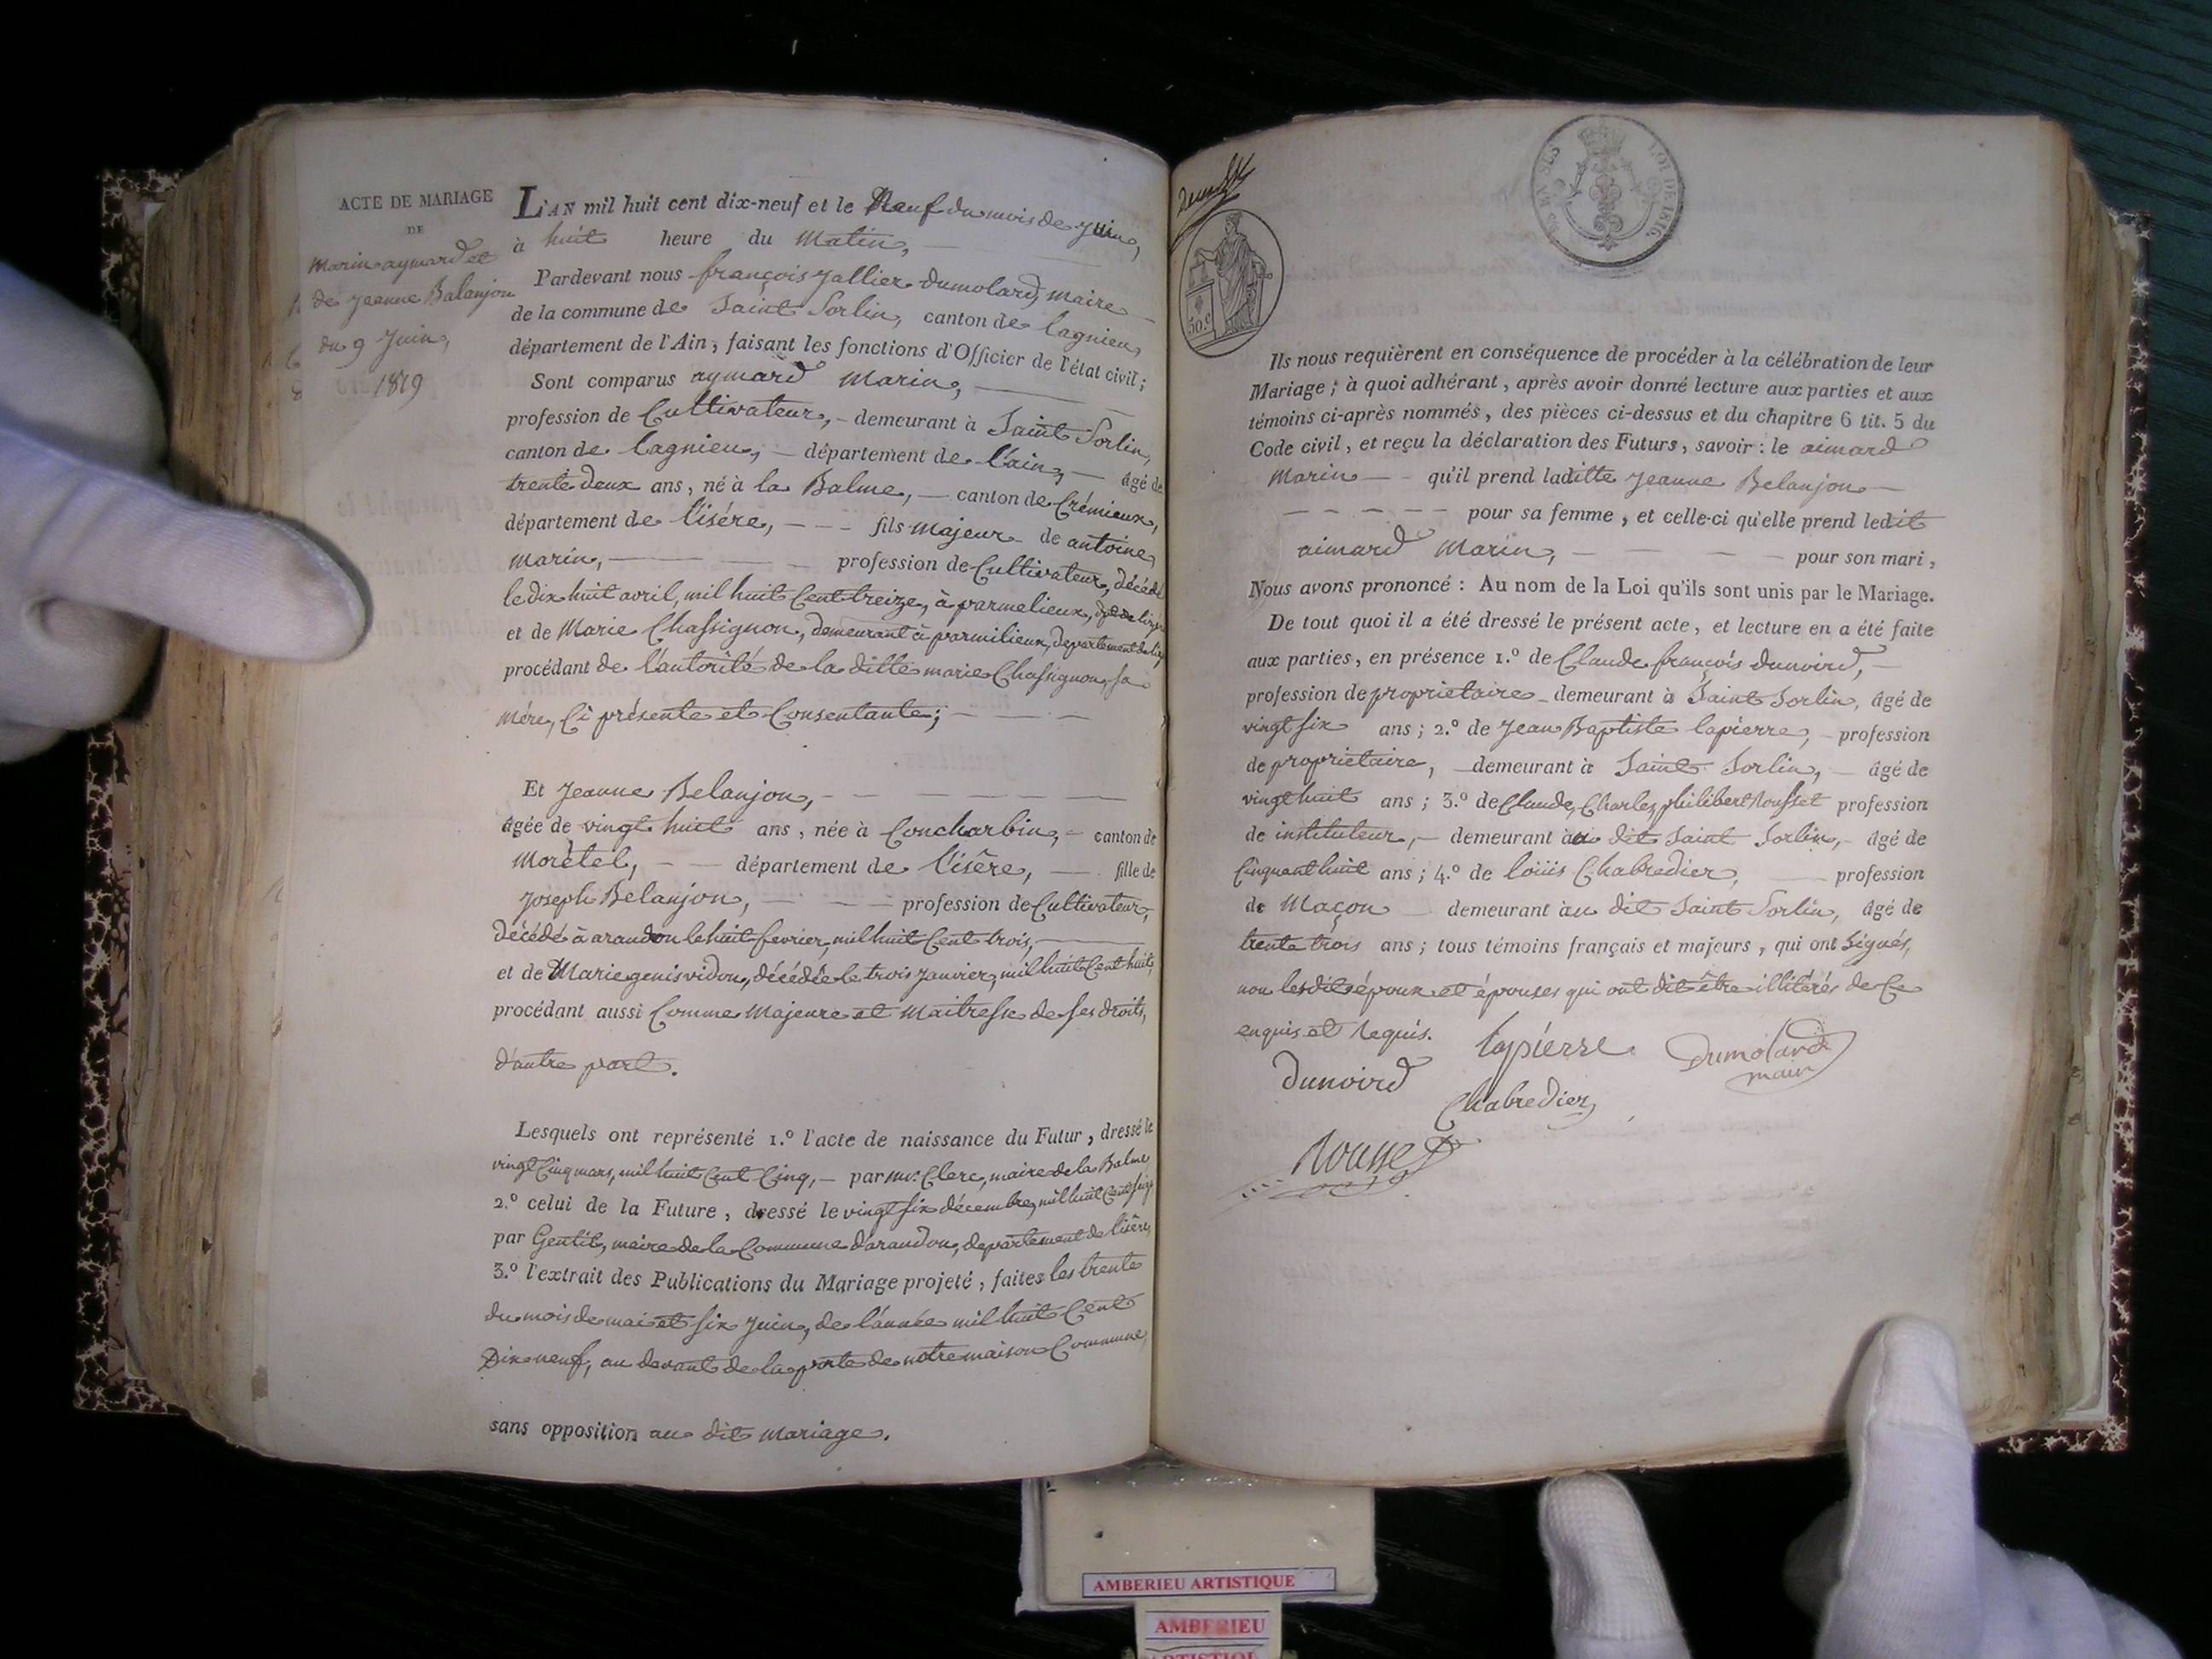 ACTE DE MARIAGE
DE
Marin aymard et
de Jeanne Balanjon
du 9 Juin,
1819
L'AN mil huit cent dix-neuf et le Neuf du mois de Juin,
à huit heure du Matin,
Pardevant nous françois Jallier Dumolard, maire
de la commune de Saint Sorlin, canton de lagnieu,
département de l'Ain, faisant les fonctions d'Officier de l'état civil;
Sont comparus aymard Marin,
profession de Cultivateur, demeurant à Saint Sorlin,
canton de lagnieu, département de l'ain, âgé de
trente deux ans, né à la Balme, canton de Crémieux,
département de l'isére, fils majeur de antoine
Marin, profession de Cultivateur, décédé
le dix huit avril, mil huit Cent treize, à parmelieux,
et de Marie Chassignon, demeurant à parmilieux, departement de
procédant de l'autorité de la ditte marie Chassignon, sa
mére, Ci présente et Consentante;
Et Jeanne Belanjon,
âgée de vingt huit ans, née à Concharbin, canton de
Morètel, département de l'isère, fille de
Joseph Belanjon, profession de Cultivateur,
décédé à arandon le huit fevrier, mil huit Cent trois,
et de Marie genis vidon, décédée le trois Janvier, mil huit Cent huit,
procédant aussi Comme Majeure et Maitresse de ses droits,
d'autre part.
Lesquels ont représenté 1.º l'acte de naissance du Futur, dressé le
vingt Cinq mars, mil huit Cent Cinq, par mr. Clerc, maire de la Balme
2.º celui de la Future, dressé le vingt six décembre, mil huit Cent
par Gentil, maire de la Commune d'arandon, departement de l'isère,
3.º l'extrait des Publications du Mariage projeté, faites les trente
du mois de mai et six Juin, de l'année mil huit Cent
Dix neuf, au devant de la porte de notre maison Commune,
sans opposition au dit mariage.
50.c
LOI DE 1816.
Ils nous requièrent en conséquence de procéder à la célébration de leur
Mariage; à quoi adhérant, après avoir donné lecture aux parties et aux
témoins ci-après nommés, des pièces ci-dessus et du chapitre 6 tit. 5 du
Code civil, et reçu la déclaration des Futurs, savoir: le aimard
Marin qu'il prend laditte Jeanne Belanjon
pour sa femme, et celle-ci qu'elle prend ledit
aimard Marin, pour son mari,
Nous avons prononcé: Au nom de la Loi qu'ils sont unis par le Mariage.
De tout quoi il a été dressé le présent acte, et lecture en a été faite
aux parties, en présence 1.º de Claude françois dunoird,
profession de proprietaire demeurant à Saint Sorlin, âgé de
vingt six ans; 2.º de Jean Baptiste lapierre, profession
de proprietaire, demeurant à Saint Sorlin, âgé de
vingt huit ans; 3.º de Claude, Charles, philibert Rousset profession
de instituteur, demeurant au dit Saint Sorlin, âgé de
Cinquant huit ans; 4.º de loüis Chabredier, profession
de Maçon demeurant au dit Saint Sorlin, âgé de
trente trois ans; tous témoins français et majeurs, qui ont signés,
non lesdits époux et épouses qui ont dit être illitérés de Ce
enquis et Requis.
lapierre
Dumolard
maire
dunoird
Chabredier
Rousset
AMBERIEU ARTISTIQUE
AMBERIEU
ARTISTIQUE